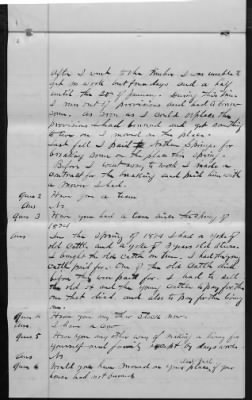 After I went to the timber I was unable to
get no work but four days and a half
until the 20th of June. During this time
I run out of provisions and had to borrow
some. As soon as I could replace the
provisions I had borrowed and got something
to live on I moved on the place.
Last fall I paid Nathan Springs for
breaking some on the place this Spring.
Before I went away to work I made a
contract for the breaking and paid him with
a Mower I had.
Ques 2 Have you a team
Ans No
Ques 3 Have you had a team since the spring of
1874
Ans In the Spring of 1874 I had a yoke of
old Cattle and a yoke of 3 years old steers.
I bought the old Cattle on time. I had the young
cattle paid for. One of the old Cattle died
before they were paid for. I had to sell
the old ox and the young cattle to pay for the
one that died and also to pay for the living
one.
Ques 4 Have you any other stock now.
Ans. I have a cow.
Ques 5 Have you any other way of making a living for
yourself and family except by days works
Ans No
Ques 6 Would you have moved on your place if your
house had not burned